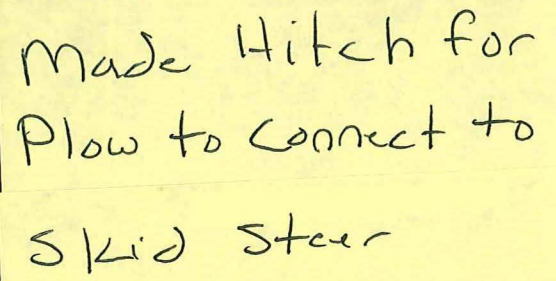 Made Hitch for
Plow to Connect to
Skid Steer